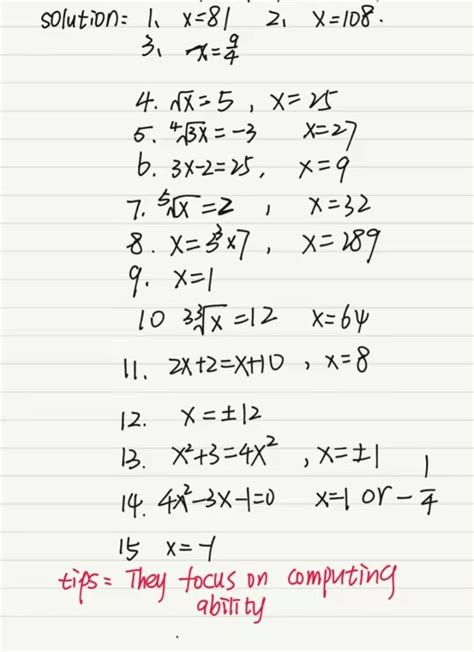 solution: 1、 x=81 2、 x=108.
3、 x=9/4
4. √x=5 , x=25
5. ⁴√3x=-3 x=27
6. 3x-2=25, x=9
7. ⁵√x=2 , x=32
8. x=3³x7 , x=289
9. x=1
10 3³√x=12 x=64
11. 2x+2=x+10 , x=8
12. x=±12
13. x²+3=4x² , x=±1
14. 4x²-3x-1=0 x=1 or -1/4
15 x=-1
tips= They focus on computing
ability